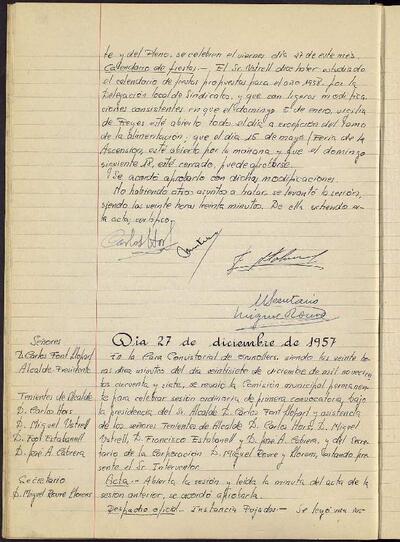 te y del Pleno, se celebren el viernes, día 27 de este mes.
Calendario de fiestas.- El Sr. Vetrell dice haber estudiado
el calendario de fiestas propuestas para el año 1958 por la
Delegación local de Sindicatos, y que con ligeras modifica-
ciones consistentes en que el domingo 5 de enero, vigilia
de Reyes esté abierto todo el día a excepción del ramo
de la alimentación; que el día 15 de mayo, Feria de la
Ascensión, esté abierto por la mañana y que el domingo
siguiente 18, esté cerrado, puede aprobarse.
Se acordó aprobarlo con dichas modificaciones.
No habiendo otros asuntos a tratar se levantó la sesión,
siendo las veinte horas treinta minutos. De ella extiendo es-
ta acta, certifico.
Carlos Hors
El Secretario
Miguel Roure
Señores
D. Carlos Font Llopart
Alcalde-Presidente
Tenientes de Alcalde
D. Carlos Hors
D. Miguel Vetrell
D. Fco Estabanell
D. José A. Cabrera
Secretario
D. Miguel Roure Llorens
Dia 27 de diciembre de 1957
En la Casa Consistorial de Granollers, siendo las veinte ho-
ras diez minutos del día veintisiete de diciembre de mil novecien-
tos cincuenta y siete, se reunió la Comisión municipal permanen-
te para celebrar sesión ordinaria de primera convocatoria, bajo
la presidencia del Sr. Alcalde D. Carlos Font Llopart y asistencia
de los señores Tenientes de Alcalde D. Carlos Hors, D. Miguel
Vetrell, D. Francisco Estabanell y D. José A. Cabrera, y del Secre-
tario de la Corporación D. Miguel Roure y Llorens, estando pre-
sente el Sr. Interventor.
Acta.- Abierta la sesión y leída la minuta del acta de la
sesión anterior, se acordó aprobarla.
Despacho oficial.- Instancia Pujadas.- Se leyó una ins-